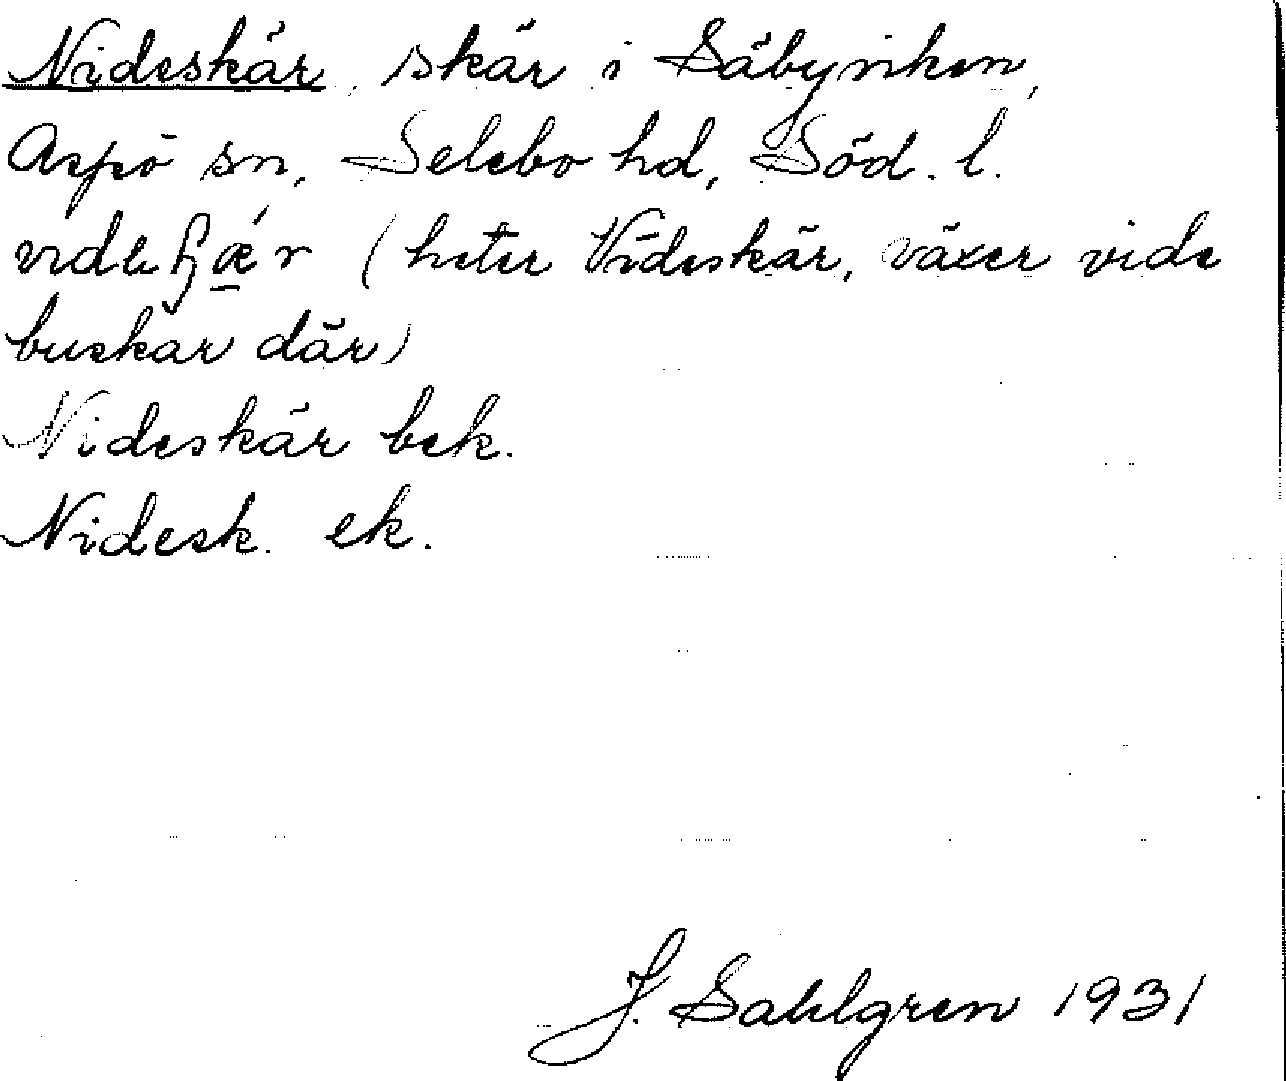 Nideskär, skär i Säbyviken,
Aspö sn, Selebo hd, Söd. l.
(heter Videskär, växer vide
buskar där)
Nideskär bek.
Nidesk. ek.
J. Sahlgren 1931